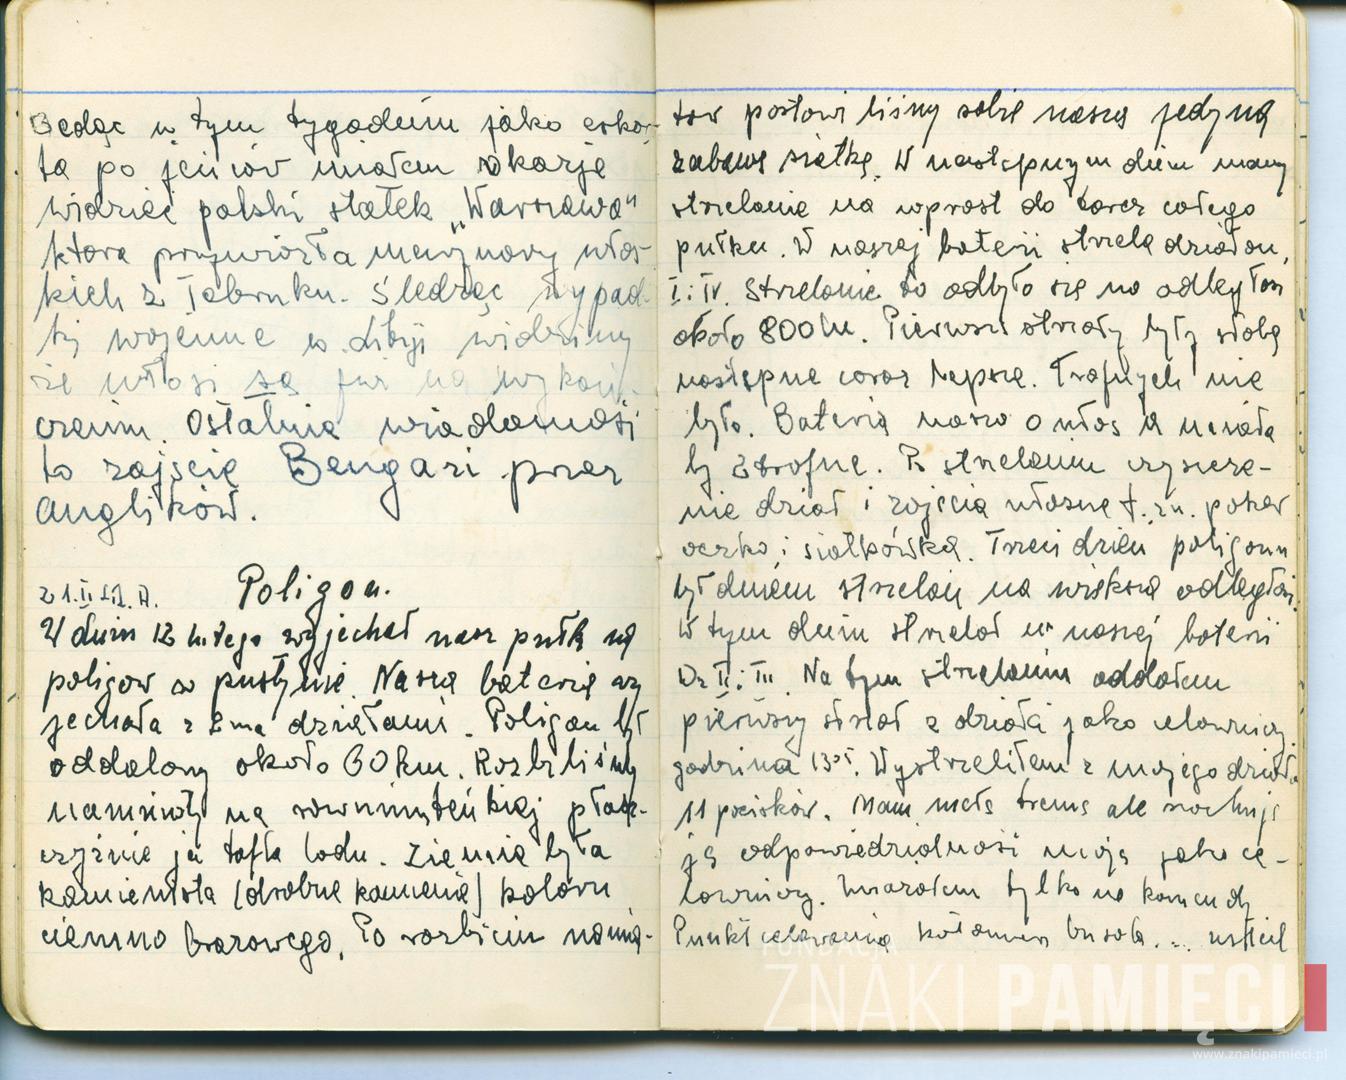 Będąc w tym tygodniu jako eskor-
ta po jeńców miałem okazję
widzieć polski statek „Warszawa"
która przywiozła marynarzy włos-
kich z Tobruku. Śledząc wypad-
ki wojenne w Libji widzimy
że włosi są już na wykoń-
czeniu. Ostatnie wiadomości
to zajęcie Bengazi przez
anglików.
21.II 41.
Poligon.
W dniu 12 lutego wyjechał nasz pułk na
poligon w pustynię. Nasza bateria wy
jechała z 2ma działami. Poligon był
oddalony około 60 km. Rozbiliśmy
namioty na równiuteńkiej płasz-
czyźnie jak tafla lodu. Ziemia była
kamienista (drobne kamienie) koloru
ciemno brązowego. Po rozbiciu namio-
tów postawiliśmy sobie naszą jedyną
zabawę siatkę. W następnym dniu mamy
strzelanie na wprost do tarcz całego
pułku. W naszej baterii strzela działon
I i IV. Strzelanie to odbyło się na odległość
około 800 m. Pierwsze strzały były słabe
następne coraz lepsze. Trafnych nie
było. Bateria nasza o włos a miała
by 2 trafne. Po strzelaniu czyszcze-
nie dział i zajęcia własne t. zn. poker
oczko i siatkówka. Trzeci dzień poligonu
był dniem strzelań na większą odległość.
W tym dniu strzelał w naszej baterii
Dz. II i III. Na tym strzelaniu oddałem
pierwszy strzał z działa jako celowniczy
godzina 13⁰⁵. Wystrzeliłem z mojego działa
11 pocisków. Mam małą tremę ale
ją odpowiedzialność moja jako ce-
lowniczy. Uważałem tylko na komendy
Punkt celowania kątomierz busola...
FUNDACJA
ZNAKI PAMIĘCI
www.znakipamieci.pl